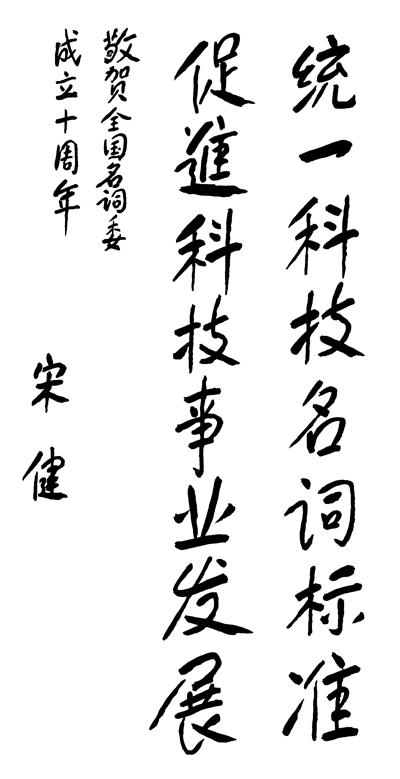 统一科技名词标准
促進科技事业发展
敬贺全国名词委
成立十周年
宋健